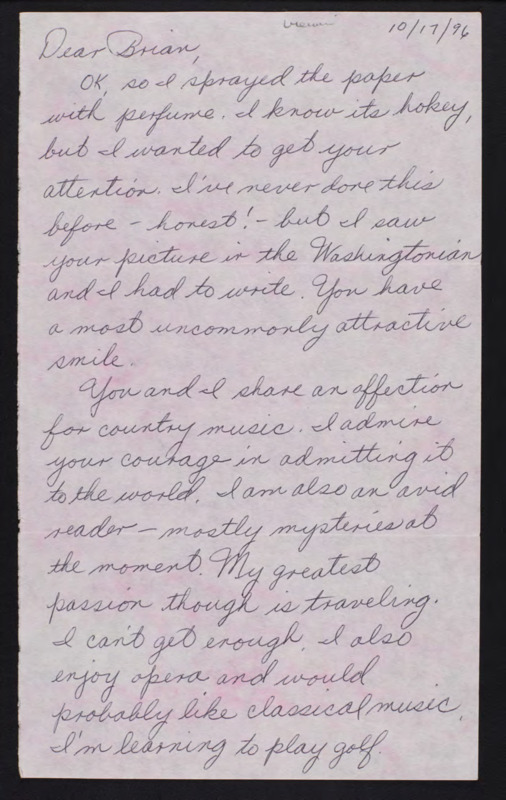 10/17/96
Dear Brian,
OK, so I sprayed the paper
with perfume. I know its hokey,
but I wanted to get your
attention. I've never done this
before - honest! - but I saw
your picture in the Washingtonian
and I had to write. You have
a most uncommonly attractive
smile.
You and I share an affection
for country music. I admire
your courage in admitting it
to the world. I am also an avid
reader - mostly mysteries at
the moment. My greatest
passion though is traveling.
I can't get enough. I also
enjoy opera and would
probably like classical music.
I'm learning to play golf.